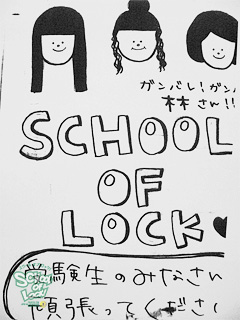 ガンバレ!ガン
林さん!!
SCHOOL
OF
LOCK
受験生のみなさん
頑張ってくださ